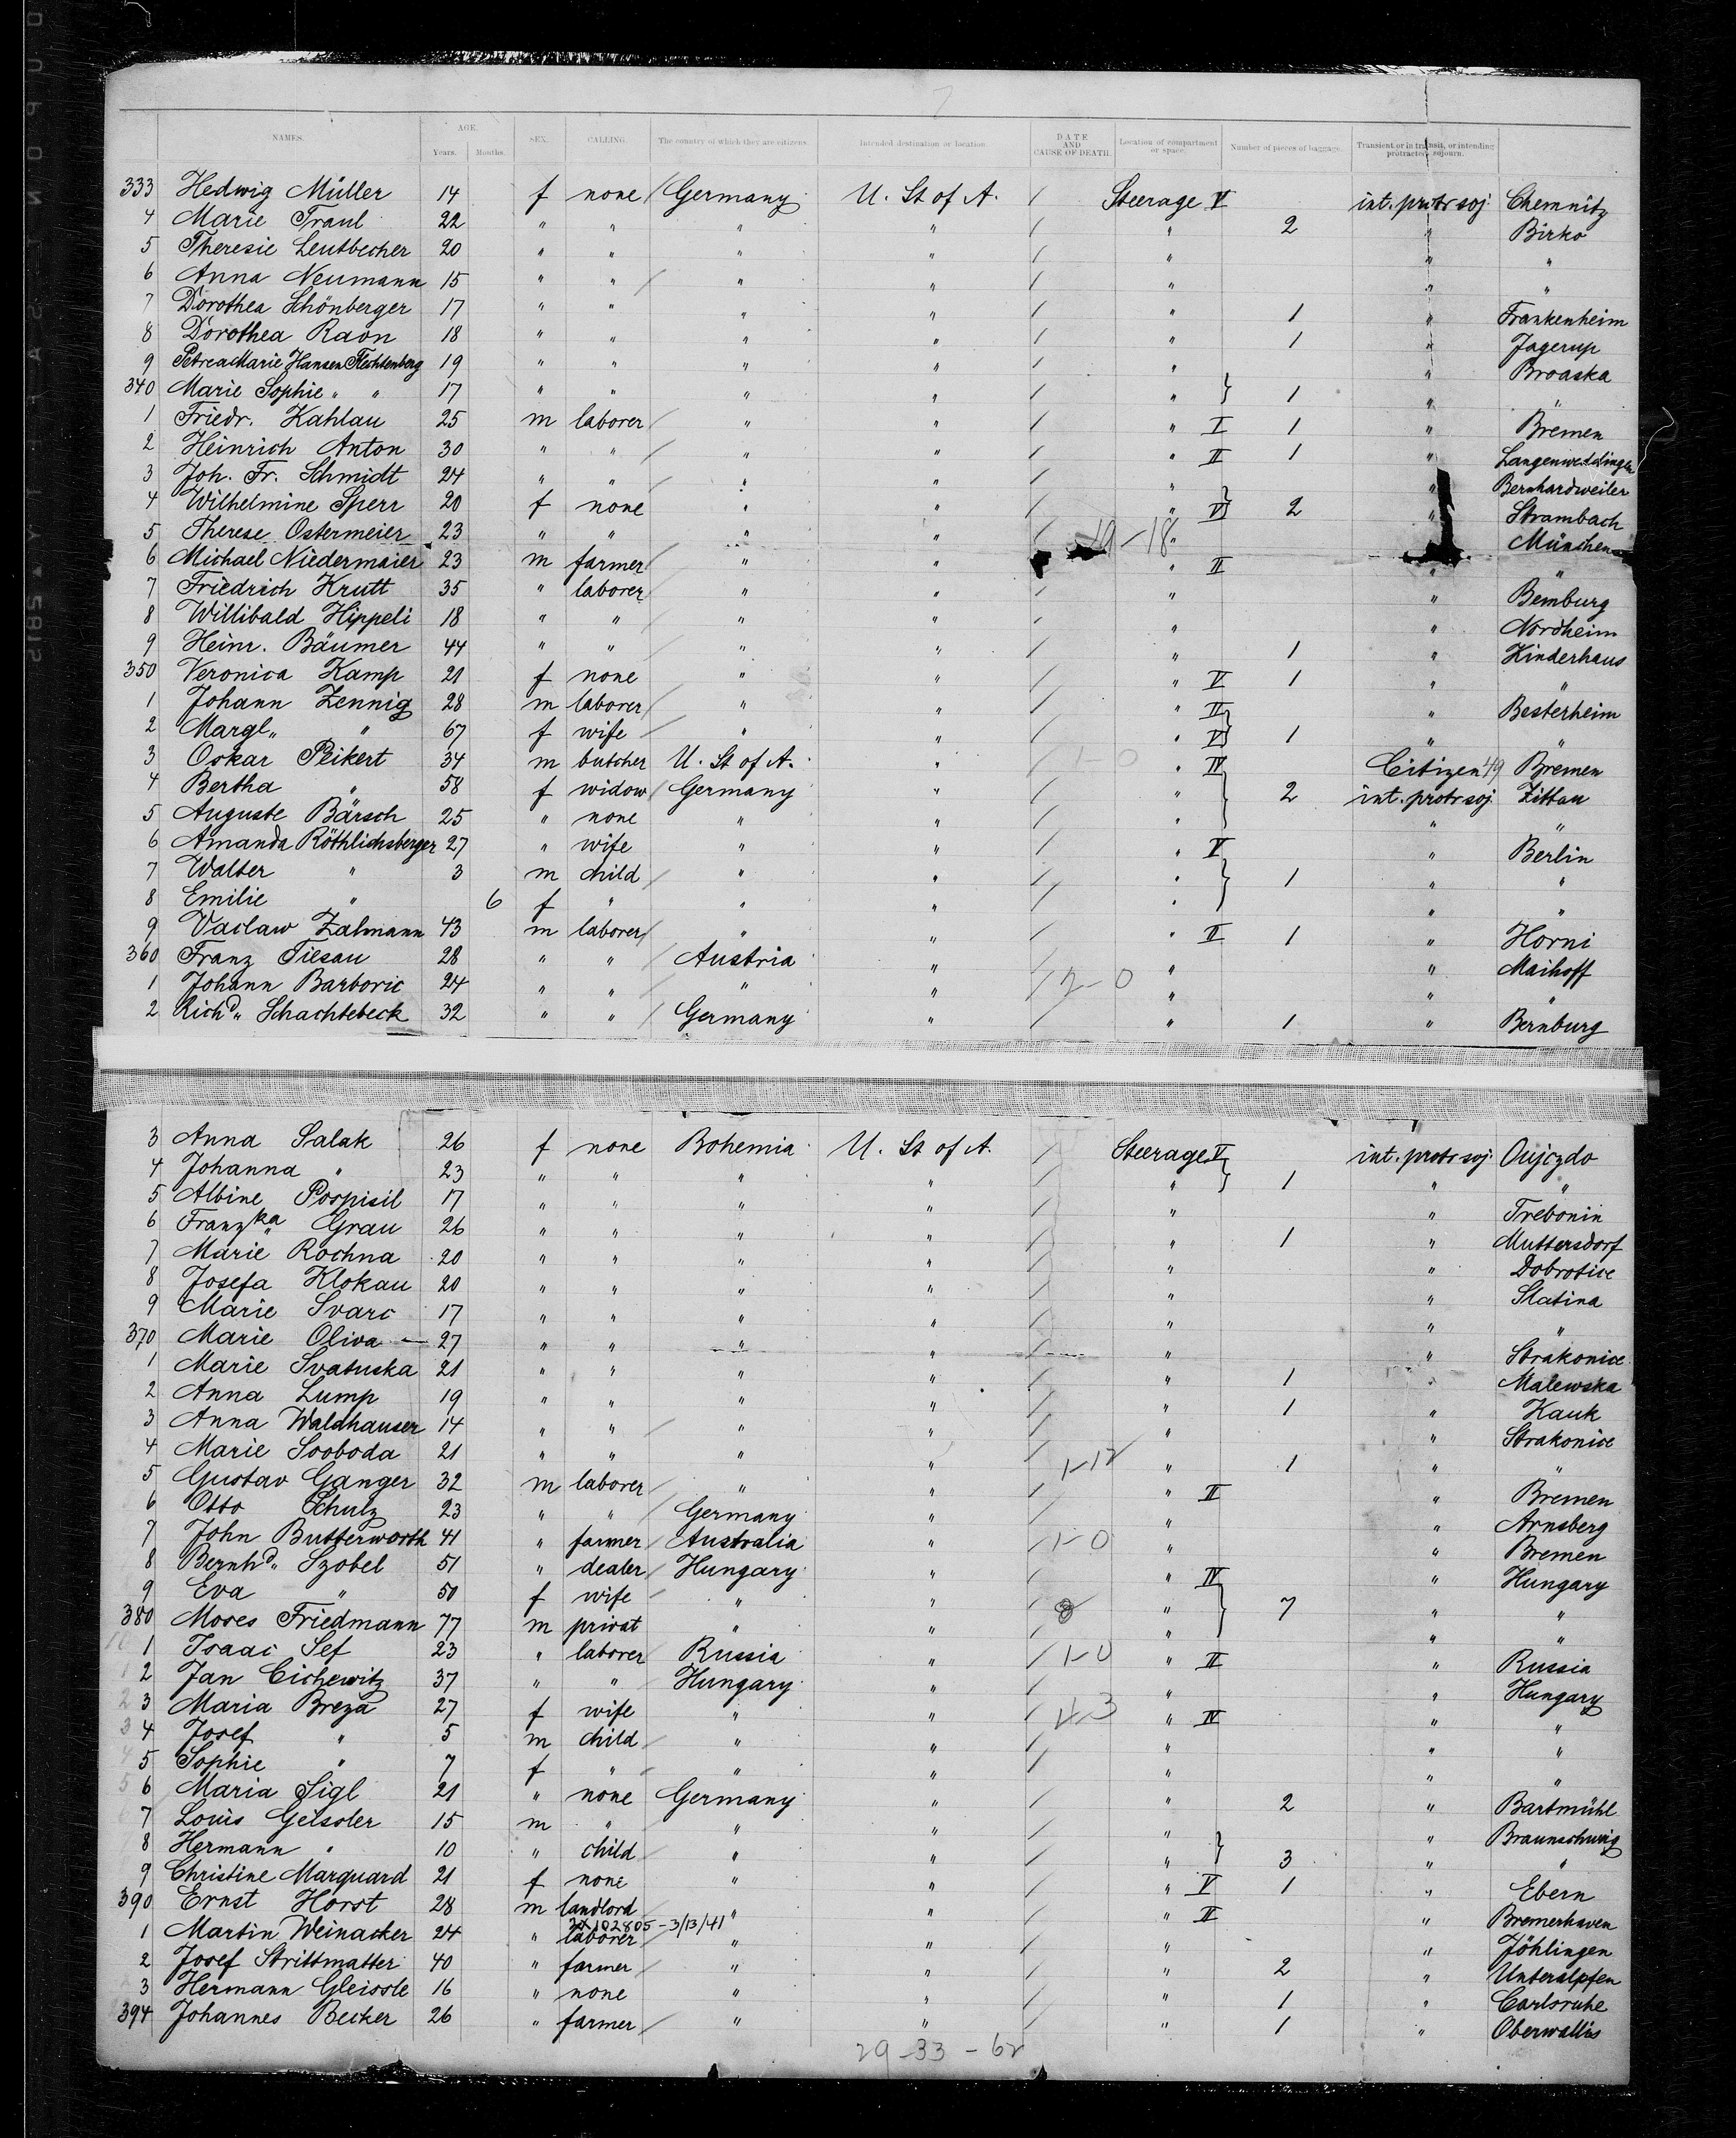 NAMES. AGE. Years. Months. SEX. CALLING. The country of which they are citizens. Intended destination or location DATE AND CAUSE OF DEATH. Location of compartment or space. Number of pieces of baggage. Transient or in transit, or intending protracted sojourn.
333 Hedwig Müller 14 f none Germany U. St of A. Steerage V int. protr soj Chemnitz
4 Marie Traul 22 " " " " " 2 " Birko
5 Theresie Leutbecher 20 " " " " " " "
6 Anna Neumann 15 " " " " " " "
7 Dorothea Schönberger 17 " " " " " 1 " Frankenheim
8 Dorothea Raon 18 " " " " " 1 " Jagerup
9 Petrea Marie Hansen Flechtenberg 19 " " " " " " Broaska
340 Marie Sophie " " 17 " " " " " 1 " "
1 Friedr. Kahlau 25 m laborer " " " I 1 " Bremen
2 Heinrich Anton 30 " " " " " II 1 " Langenweddingen
3 Joh. Fr. Schmidt 24 " " " " " " Bernhardweiler
4 Wilhelmine Sperr 20 f none " " " V 2 " Strambach
5 Therese Ostermeier 23 " " " " 19-18 " München
6 Michael Niedermaier 23 m farmer " " " II " "
7 Friedrich Krutt 35 " laborer " " " " Bemburg
8 Willibald Hippeli 18 " " " " " " Nordheim
9 Heinr. Bäumer 44 " " " " " 1 " Kinderhaus
350 Veronica Kamp 21 f none " " " V 1 " "
1 Johann Zennig 28 m laborer " " " II " Besterheim
2 Margl. " 67 f wife " " " V 1 " "
3 Oskar Peikert 34 m butcher U. St of A. " 1-0 " IV Citizen 49 Bremen
4 Bertha " 58 f widow Germany " " 2 int. protr soj Zittau
5 Auguste Bärsch 25 " none " " " " "
6 Amanda Röthlichsberger 27 " wife " " " V " Berlin
7 Walter " 3 m child " " " 1 " "
8 Emilie " 6 f " " " " " "
9 Vaclaw Zalmann 43 m laborer " " " II 1 " Horni
360 Franz Tiesau 28 " " Austria " " " Maihoff
1 Johann Barboric 24 " " " " 2-0 " " "
2 Richd. Schachtebeck 32 " " Germany " " 1 " Bernburg
3 Anna Salak 26 f none Bohemia U. St of A. Steerage V int. protr soj Oujczdo
4 Johanna " 23 " " " " " 1 " "
5 Albine Pospisil 17 " " " " " " Trebonin
6 Franzka Grau 26 " " " " " 1 " Muttersdorf
7 Marie Rochna 20 " " " " " " Dobrotice
8 Josefa Klokau 20 " " " " " " Slatina
9 Marie Svarc 17 " " " " " " "
370 Marie Oliva 27 " " " " " " Strakonice
1 Marie Svatuska 21 " " " " " 1 " Malewska
2 Anna Lump 19 " " " " " 1 " Kauk
3 Anna Waldhauser 14 " " " " " " Strakonice
4 Marie Svoboda 21 " " " " 1-12 " 1 " "
5 Gustav Ganger 32 m laborer " " " II " Bremen
6 Otto Schulz 23 " " Germany " " " Arnsberg
7 John Butterworth 41 " farmer Australia " 1-0 " " Bremen
8 Bernhd. Szobel 51 " dealer Hungary " " IV " Hungary
9 Eva " 50 f wife " " 8 " 7 " "
380 Moses Friedmann 77 m privat " " " " "
1 Isaac Sef 23 " laborer Russia " 1-0 " II " Russia
2 Jan Cichewitz 37 " " Hungary " " " Hungary
3 Maria Breza 27 f wife " " 4-3 " IV " "
4 Josef " 5 m child " " " " "
5 Sophie " 7 f " " " " " "
6 Maria Sigl 21 " none Germany " " 2 " Bartmühl
7 Louis Geissler 15 m " " " " " Braunschweig
8 Hermann " 10 " child " " " 3 " "
9 Christine Marquard 21 f none " " " V 1 " Ebern
390 Ernst Horst 28 m landlord " " " II " Bremerhaven
2X102805 - 3/13/41
1 Martin Weinacker 24 " laborer " " " " Jöhlingen
2 Josef Strittmatter 40 " farmer " " " 2 " Unteralpfen
3 Hermann Gleissle 16 " none " " " 1 " Carlsruhe
394 Johannes Becker 26 " farmer " " " 1 " Oberwallis
29-33-62